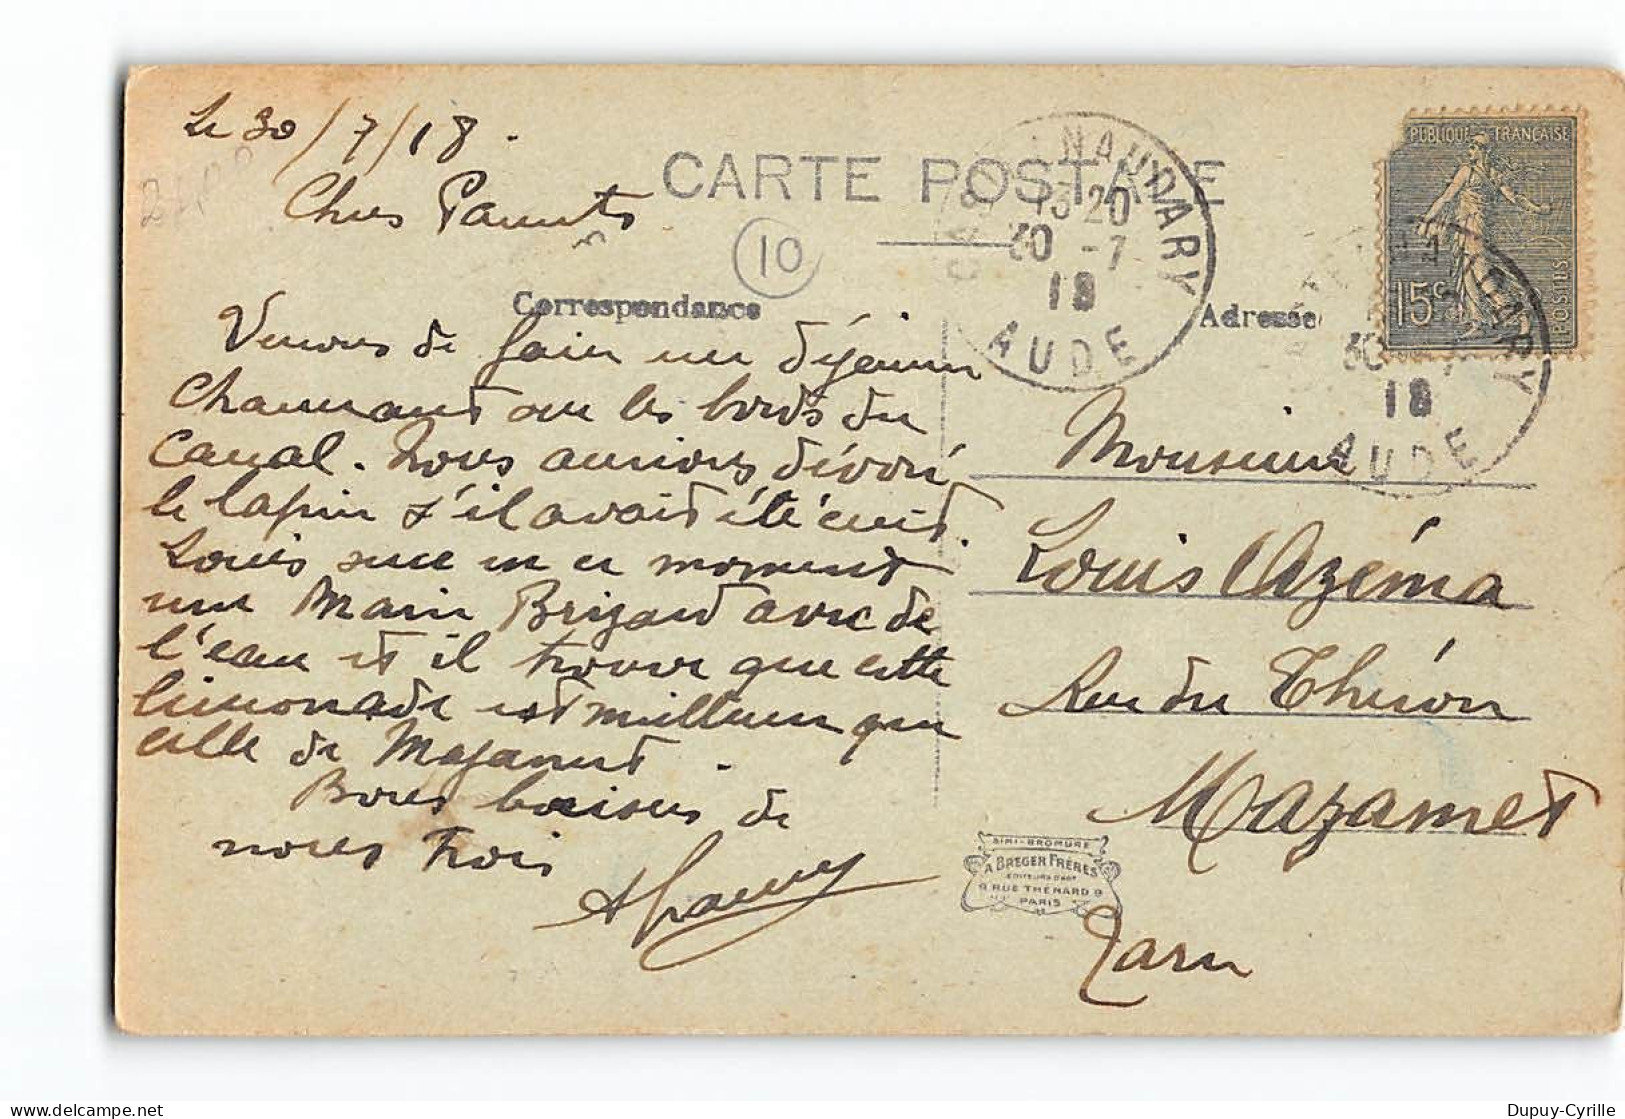 Le 30/7/18.
Chers Parents
CARTE POSTALE
10
Correspondance
Venons de faire un déjeuner
charmant sur les bords du
Canal. Nous aurions dévoré
le lapin s'il avait été cuit.
Louis suce en ce moment
une Marie Brizard avec de
l'eau et il trouve que cette
limonade est meilleure que
celle de Mazamet.
Bons baisers de
nous trois
CASTELNAUDARY
13 20
30 -7
18
AUDE
RÉPUBLIQUE FRANÇAISE
15c
POSTES
CASTELNAUDARY
30 -7
18
AUDE
Adresse
Monsieur
Louis Azéma
Rue du Théron
Mazamet
Tarn
SIMI-BROMURE
A BREGER FRÈRES
EDITEURS D'ART
9 RUE THENARD 9
PARIS
Dupuy-Cyrille